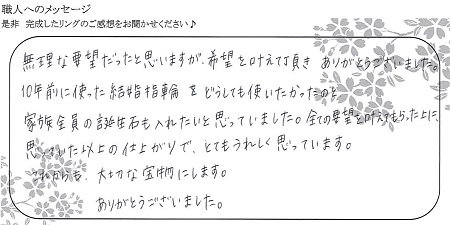 職人へのメッセージ
是非 完成したリングのご感想をお聞かせください♪
無理な要望だったと思いますが、希望を叶えて頂き ありがとうございました。
10年前に使った結婚指輪をどうしても使いたかったのと
家族全員の誕生石も入れたいと思っていました。全ての要望を叶えてもらった上に、
思っていた以上の仕上がりで、とてもうれしく思っています。
これからも、大切な宝物にします。
ありがとうございました。